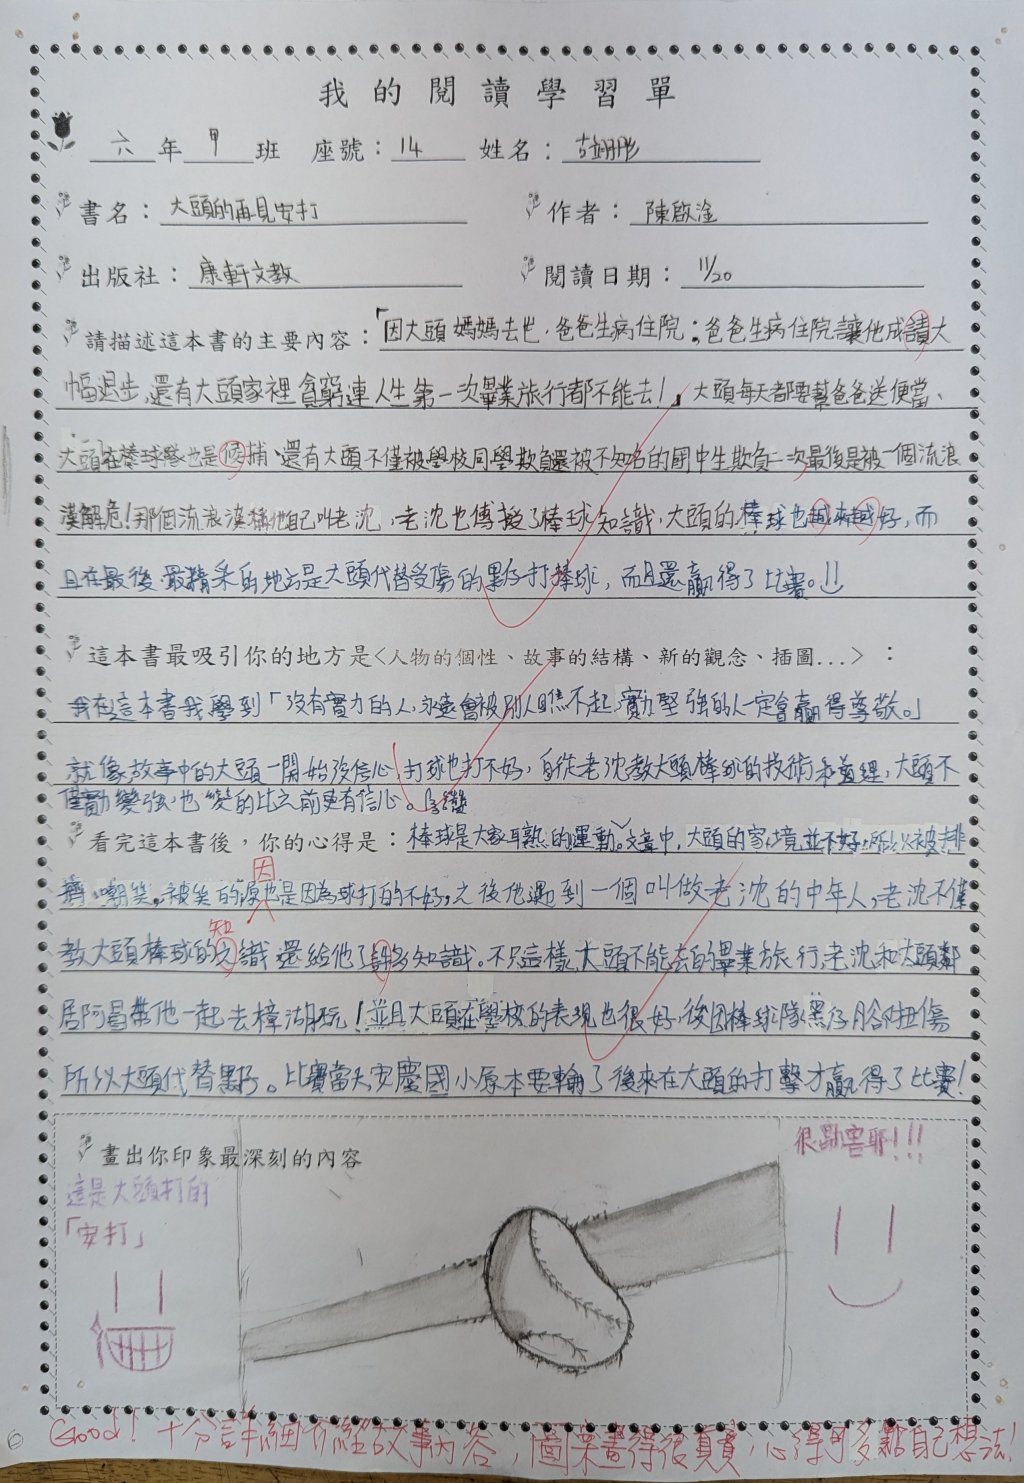 我的閱讀學習單
六年甲班 座號：14 姓名：
書名：大頭的再見安打 作者：陳啟淦
出版社：康軒文教 閱讀日期：11/20
請描述這本書的主要內容：「因大頭媽媽去世，爸爸生病住院；爸爸生病住院讓他成讀大
幅退步，還有大頭家裡貧窮連人生第一次畢業旅行都不能去！」大頭每天都要幫爸爸送便當、
大頭在棒球隊也是候捕、還有大頭不僅被學校同學欺負還被不知名的國中生欺負一次，最後是被一個流浪
漢解危！那個流浪漢稱他自己叫老沈，老沈也傳授了棒球知識，大頭的棒球也越來越好，而
且在最後最精采的地方是大頭代替受傷的黑仔打棒球，而且還贏得了比賽。!!
這本書最吸引你的地方是<人物的個性、故事的結構、新的觀念、插圖...>：
我在這本書我學到「沒有實力的人，永遠會被別人瞧不起，實力堅強的人一定會贏得尊敬。」
就像故事中的大頭一開始沒信心，打球也打不好，自從老沈教大頭棒球的技術和道理，大頭不
僅實力變強，也變的比之前更有信心。
看完這本書後，你的心得是：棒球是大家耳熟的運動。文章中，大頭的家境並不好，所以被排
擠、嘲笑，被笑的原因也是因為球打的不好，之後他遇到一個叫做老沈的中年人，老沈不僅
知
教大頭棒球的識還給他了許多知識。不只這樣，大頭不能去的畢業旅行，老沈和大頭鄰
居阿昌帶他一起去樟湖玩！並且大頭在學校的表現也很好，後因棒球隊黑仔腳扭傷
所以大頭代替黑仔。比賽當天安慶國小原本要輸了後來在大頭的打擊才贏得了比賽！
畫出你印象最深刻的內容
很厲害耶!!!
這是大頭打的
「安打」
Good！十分詳細介紹故事內容，圖案畫得很真實，心得可多點自己想法！